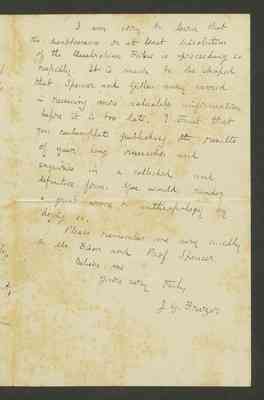 I am sorry to learn that
the disappearance or at least dissolution
of the Australian tribes is proceeding so
rapidly. It is much to be hoped
that Spencer and Gillen may succeed
in rescuing more valuable information
before it is too late. I trust that
you contemplate publishing the results
of your long researches and
enquiries in a collected and
definitive form. You would render
a great service to anthropology by
doing so.
Please remember me very kindly
to Mr and Prof Spencer.
Believe me
Yours very truly
J. G. Frazer